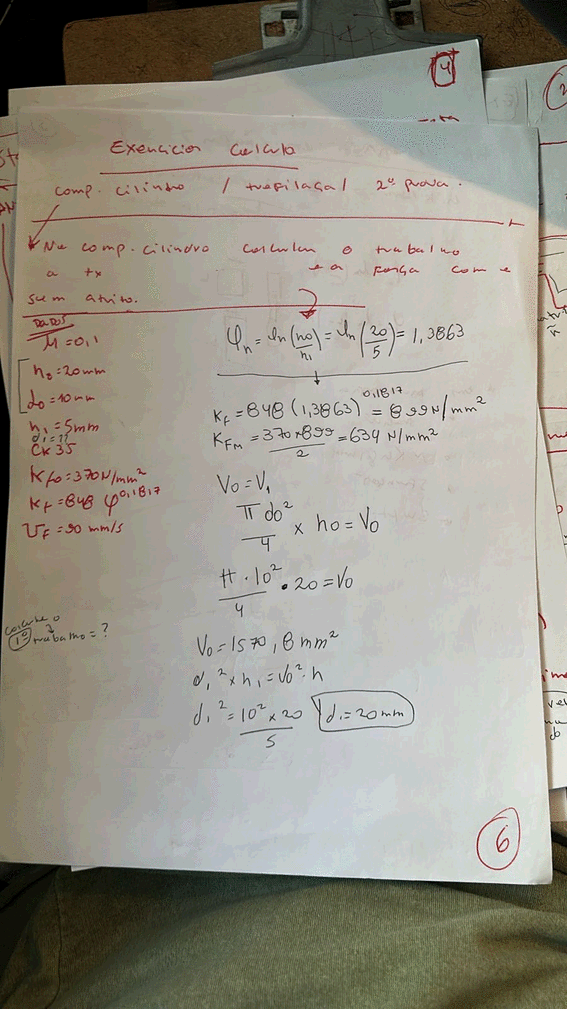 4
Exercicios Calculo
comp. cilindro / trefilaçaj 2º prova.
Na comp. cilindro calcular o trabalho
a tx e a força com e
sem atrito.
DADOS
M = 0,1
h0 = 20mm
d0 = 10mm
h1 = 5mm
d1 = ??
CK 35
Kf0 = 370 N/mm²
Kf = 848 φ^0,1817
VF = 90 mm/s
calcule o
1º trabalho = ?
φh = ln(h0/h1) = ln(20/5) = 1,3863
Kf = 848 (1,3863)^0,1817 = 899 N/mm²
KFm = 370 x 899 / 2 = 634 N/mm²
V0 = V1
π d0² / 4 x h0 = V0
π · 10² / 4 · 20 = V0
V0 = 1570,8 mm²
d1² x h1 = d0² · h
d1² = 10² x 20 / 5 d1 = 20 mm
6